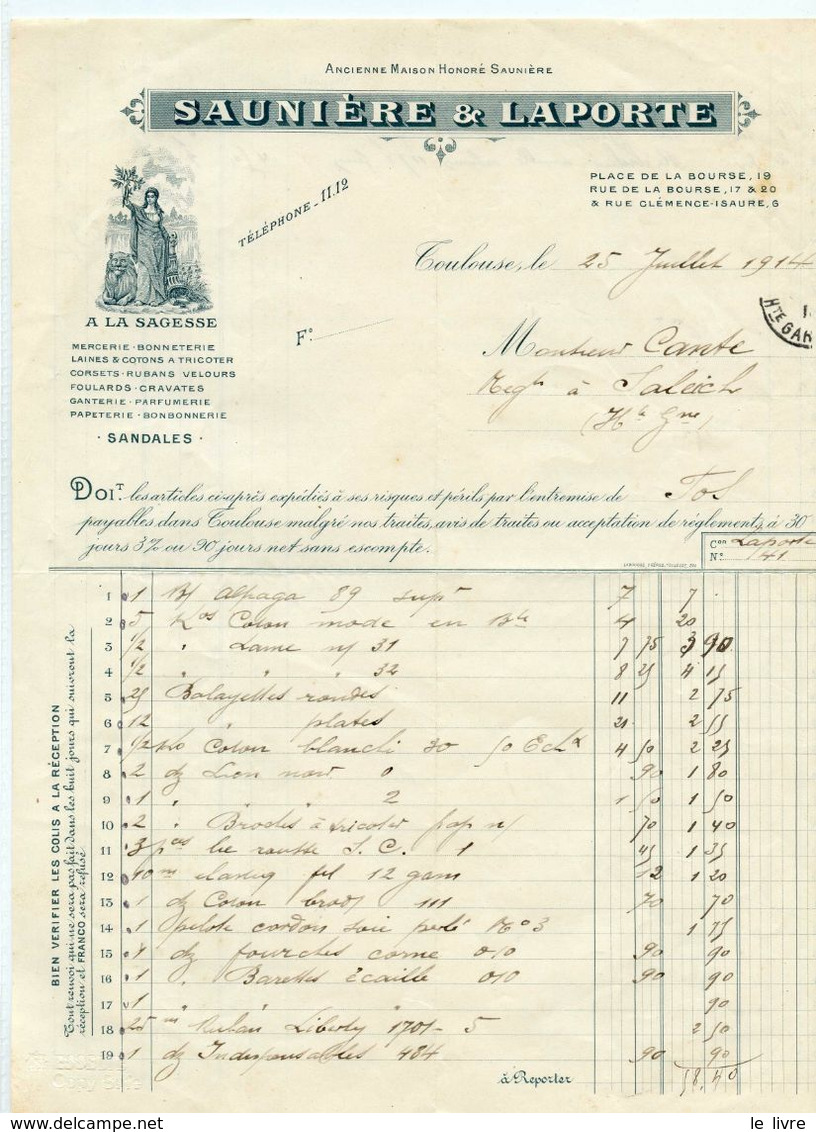 ANCIENNE MAISON HONORÉ SAUNIÈRE
SAUNIÈRE & LAPORTE
PLACE DE LA BOURSE, 19
RUE DE LA BOURSE, 17 & 20
& RUE CLÉMENCE-ISAURE, 6
TÉLÉPHONE - 11.12
Toulouse, le 25 Juillet 1914
HTE GAR
A LA SAGESSE
F°:
Monsieur Cante
Negt à Saleich
(Hte Gne)
MERCERIE · BONNETERIE
LAINES & COTONS A TRICOTER
CORSETS · RUBANS VELOURS
FOULARDS · CRAVATES
GANTERIE · PARFUMERIE
PAPETERIE · BONBONNERIE
· SANDALES ·
DOIT les articles ci-après expédiés à ses risques et périls par l'entremise de
payables dans Toulouse malgré nos traites, avis de traites ou acceptation de règlements, à 30
jours 3% ou 90 jours net sans escompte.
Con Laporte
N° 141
BIEN VERIFIER LES COLIS A LA RÉCEPTION
Tout renvoi qui ne sera pas fait dans les huit jours qui suivront la
réception et FRANCO sera refusé.
1 1 alpaga 89 supr 7 7
2 5 Kos Coton mode en Bte 4 20
3 1/2 " Lame n/ 31 7 75 3 90
4 1/2 " " " 32 8 25 4 15
5 25 Balayettes rondes 11 2 75
6 12 " plates 21 2 55
7 1/2 Kilo Coton blanchi 30 50 Echx 4 50 2 25
8 2 dz Lien noir 0 90 1 80
9 1 " " " 2 1 50 1 50
10 2 " Broches à tricoter n/ 70 1 40
11 3 pces rousse S.C. 1 45 1 35
12 10 m elastiq fil 12 gam 12 1 20
13 1 dz Coton brod/ 111 70 70
14 1 pelote cordon soie perlé No 3 1 75
15 1 dz fourches corne 010 90 90
16 1 " Barettes écaille 010 90 90
17 1 " " " 90
18 25 m Ruban Liberty 1701 - 5 2 50
19 1 dz Indispensables 484 90 90
à Reporter 58,40
le livre